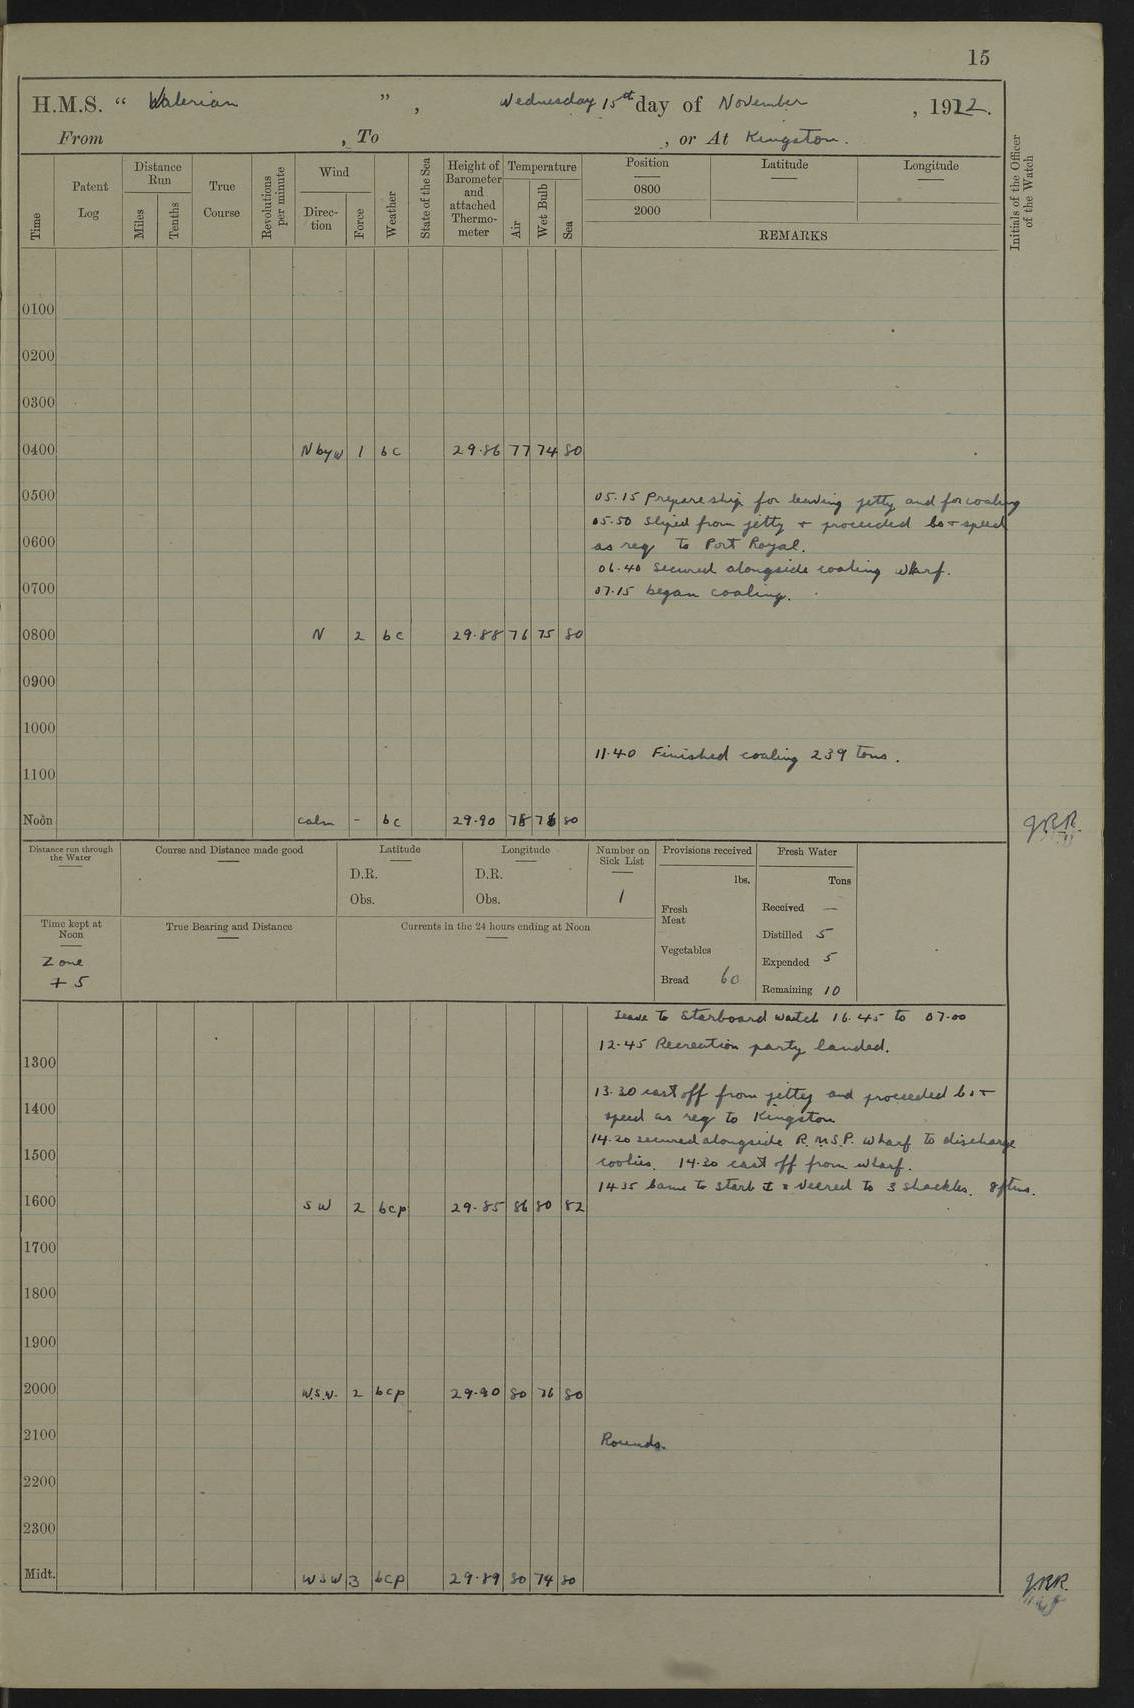 15
H.M.S. “ Valerian ” , Wednesday 15th day of November , 1922.
From , To , or At Kingston.
Time
Patent Log
Distance Run
Miles
Tenths
True Course
Revolutions per minute
Wind
Direction
Force
Weather
State of the Sea
Height of Barometer and attached Thermometer
Temperature
Air
Wet Bulb
Sea
Position
0800
2000
Latitude
Longitude
REMARKS
Initials of the Officer of the Watch
0100
0200
0300
0400 N by W 1 bc 29.86 77 74 80
0500
05.15 Prepare ship for leaving jetty and for coaling
05.50 Sliped from jetty + proceeded co + speed
0600
as req to Port Royal.
06.40 Secured alongside coaling wharf.
0700
07.15 began coaling.
0800 N 2 bc 29.88 76 75 80
0900
1000
11.40 Finished coaling 239 tons.
1100
Noon calm - bc 29.90 78 76 80 J.R.R.
Distance run through the Water
Course and Distance made good
Latitude
D.R.
Obs.
Longitude
D.R.
Obs.
Number on Sick List
1
Provisions received
lbs.
Fresh Meat
Vegetables
Bread 60
Fresh Water
Tons
Received —
Distilled 5
Expended 5
Remaining 10
Time kept at Noon
Zone
+ 5
True Bearing and Distance
Currents in the 24 hours ending at Noon
Leave to Starboard Watch 16.45 to 07.00
12.45 Recreation party landed.
1300
13.30 cast off from jetty and proceeded co +
1400
speed as req to Kingston
14.20 secured alongside R.M.S.P. wharf to discharge
1500
coolies. 14.30 cast off from wharf.
14 35 Came to starb veered to 3 shackles. 8 ftms.
1600 SW 2 bcp 29.85 86 80 82
1700
1800
1900
2000 W.S.W. 2 bcp 29.90 80 76 80
2100
Rounds.
2200
2300
Midt. WSW 3 bcp 29.89 80 74 80 J.R.R.